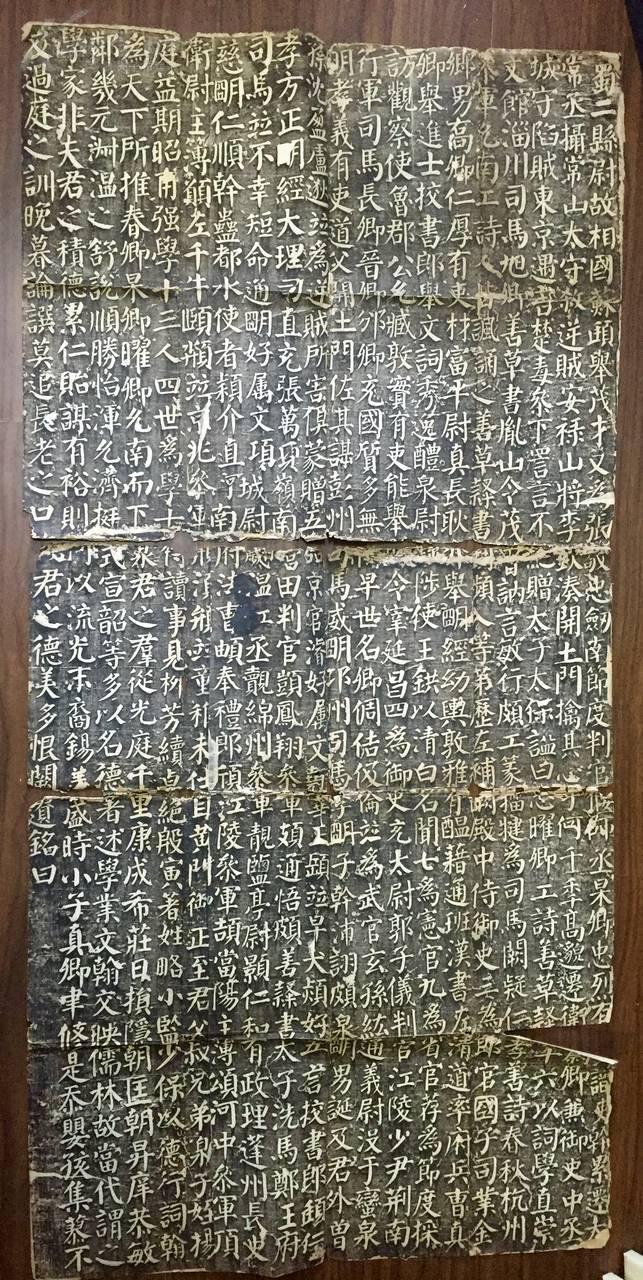 蜀二縣尉故相國蘇頲舉茂才又為張敬忠劍南節度判官偃師丞杲卿忠烈有清識吏幹累遷太
常丞攝常山太守殺逆賊安祿山將李欽湊開土門擒其心手何千季高邈遷衛尉卿兼御史中丞
城守陷賊東京遇害楚毒參下詈言不絕贈太子太保謚曰忠曜卿工詩善草隸十六以詞學直崇
文館淄川司馬旭卿善草書胤山令茂曾訥言敏行頗工篆籀犍為司馬闕疑仁孝善詩春秋杭州
參軍允南工詩人皆諷誦之善草隸書判頻入等第歷左補闕殿中侍御史三為郎官國子司業金
鄉男喬卿仁厚有吏材富平尉真長耿介舉明經幼輿敦雅有醞藉通班漢書左清道率府兵曹真
卿舉進士挍書郎舉文詞秀逸醴泉尉黜陟使王鉷以清白名聞七為憲官九為省官荐為節度採
訪觀察使魯郡公允臧敦實有吏能舉縣令宰延昌四為御史充太尉郭子儀判官江陵少尹荊南
行軍司馬長卿晉卿邠卿充國質多無祿早世名卿倜佶伋倫並為武官玄孫紘通義尉沒于蠻泉
明孝義有吏道父開土門佐其謀彭州司馬威明邛州司馬季明子幹沛詡頗泉明男誕及君外曾
孫沈盈盧逖並為逆賊所害俱蒙贈五品京官濬好屬文翹華正顗並早夭熲好五言挍書郎頲仁
孝方正明經大理司直充張萬頃嶺南營田判官顗鳳翔參軍頗通悟頗善隸書太子洗馬鄭王府
司馬並不幸短命通明好屬文項城尉翽溫江丞覿綿州參軍靚鹽亭尉顥仁和有政理蓬州長史
慈明仁順幹蠱都水使者穎介直河南府法曹頔奉禮郎頎江陵參軍頡當陽主簿頌河中參軍頂
衛尉主簿願左千牛頤顙並京兆參軍須頍並童稚未仕自黃門御正至君父叔兄弟息子姪揚
庭益期昭甫強學十三人四世為學士侍讀事見柳芳續卓絕殷寅著姓略小監少保以德行詞翰
為天下所推春卿杲卿曜卿允南而下眾君之羣從光庭千里康成希莊日損隱朝匡朝昇庠恭敏
鄰幾元淵溫之舒說順勝怡渾允濟挺式宣韶等多以名德著述學業文翰交映儒林故當代謂之
學家非夫君之積德累仁貽謀有裕則何以流光末裔錫羨盛時小子真卿聿修是忝嬰孩集蓼不
及過庭之訓晚暮論譔莫追長老之口故君之德美多恨闕遺銘曰